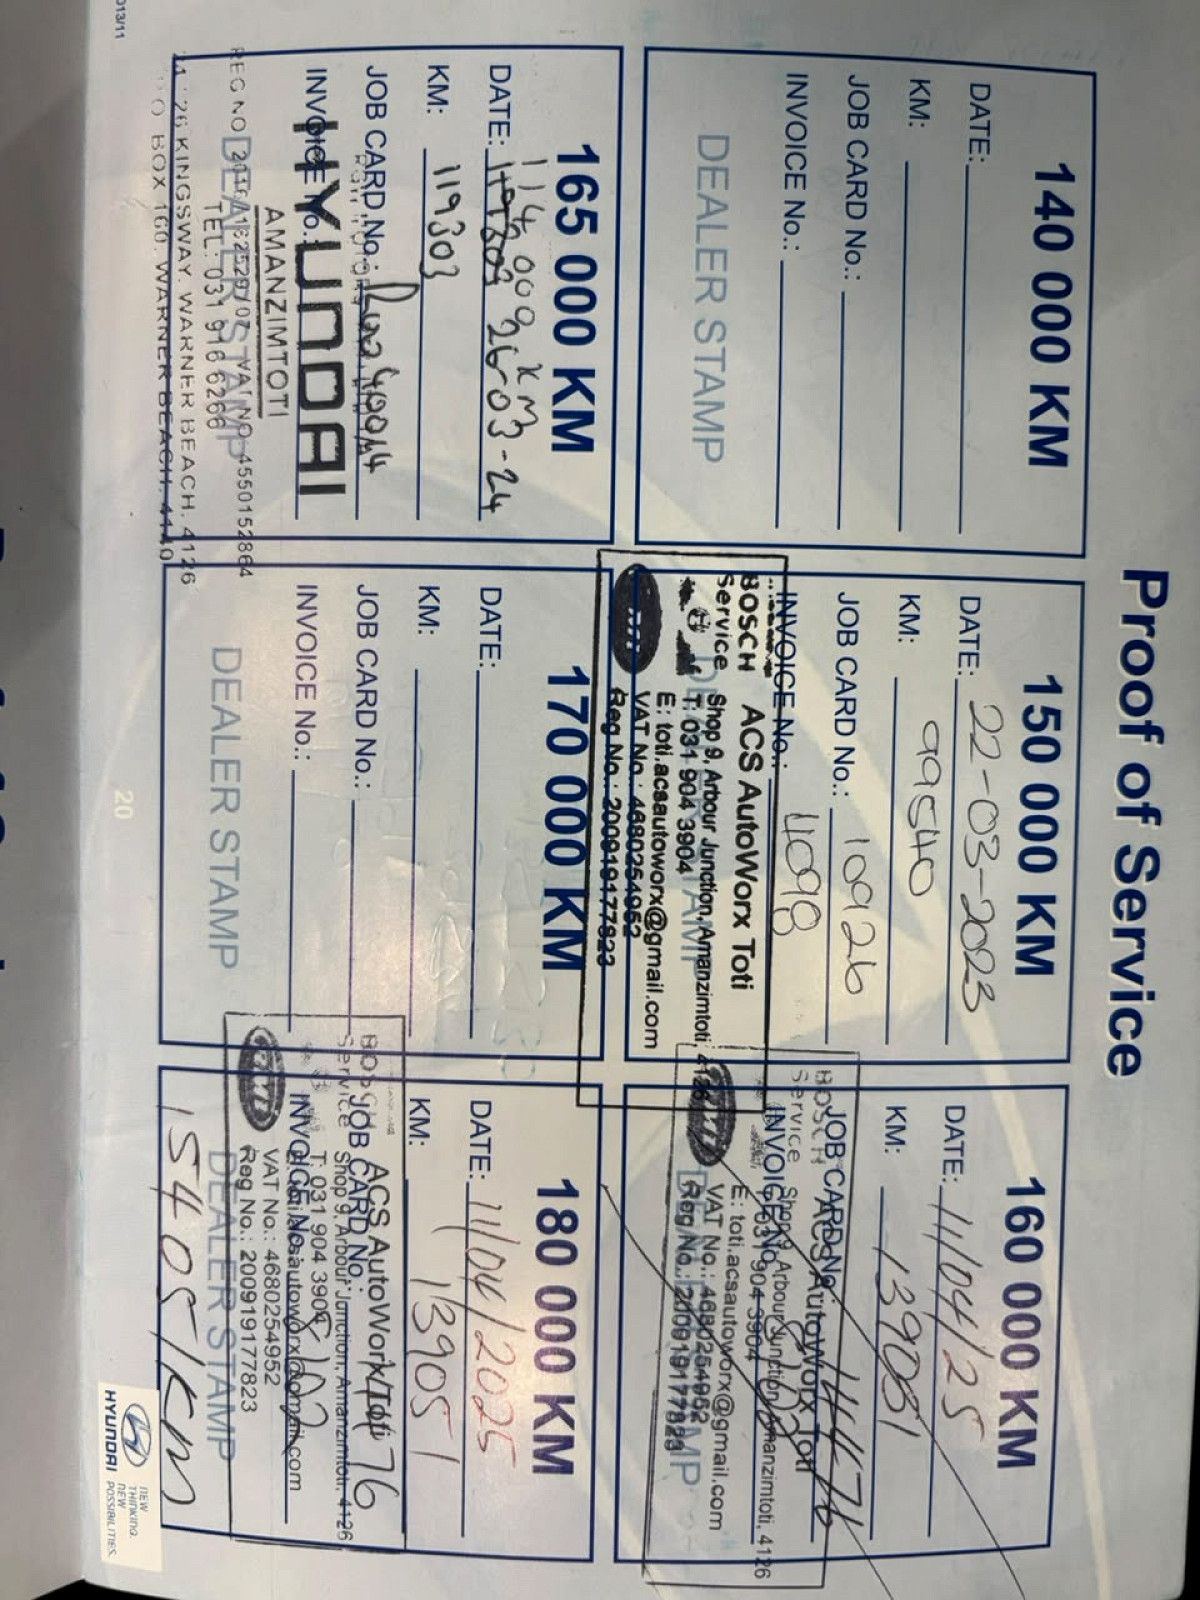 Proof of Service
140 000 KM
DATE:
KM:
JOB CARD No.:
INVOICE No.:
DEALER STAMP
150 000 KM
DATE: 22-03-2023
KM: 99540
JOB CARD No.: 10926
INVOICE No.: 4098
DEALER STAMP
BOSCH
Service
ACS AutoWorx Toti
Shop 9, Arbour Junction, Amanzimtoti, 4126
T: 031 904 3904
E: toti.acsautoworx@gmail.com
VAT No.: 4680254952
Reg No.: 200919177823
160 000 KM
DATE: 11/04/25
KM: 139051
JOB CARD No.: 14476
INVOICE No.:
DEALER STAMP
BOSCH
Service
ACS AutoWorx Toti
Shop 9, Arbour Junction, Amanzimtoti, 4126
T: 031 904 3904
E: toti.acsautoworx@gmail.com
VAT No.: 4680254952
Reg No.: 200919177823
165 000 KM
114 009 KM
DATE: 119303 26-03-24
KM: 119303
JOB CARD No.:
INVOICE No.:
HYUNDAI
AMANZIMTOTI
DEALER STAMP
TEL: 031 916 6266
VAT NO. 4550152864
26 KINGSWAY. WARNER BEACH. 4126
BOX 160. WARNER BEACH. 4140
170 000 KM
DATE:
KM:
JOB CARD No.:
INVOICE No.:
DEALER STAMP
180 000 KM
DATE: 11/04/2025
KM: 139051
JOB CARD No.: 14476
INVOICE No.:
DEALER STAMP
BOSCH
Service
ACS AutoWorx Toti
Shop 9, Arbour Junction, Amanzimtoti, 4126
T: 031 904 3904
VAT No.: 4680254952
Reg No.: 200919177823
154051km
013/11
20
HYUNDAI
NEW
THINKING.
NEW
POSSIBILITIES.